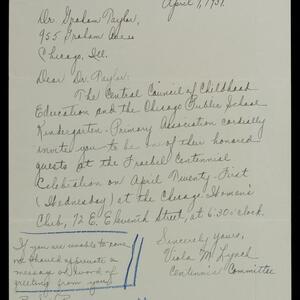 April 1, 1937.
Dr. Graham Taylor,
955 Graham Ave
Chicago, Ill.
Dear Dr. Taylor:
The Central Council of Childhood
Education and the Chicago Public School
Kindergarten-Primary Association cordially
invite you to be one of their honored
guests at the Froebel Centennial
Celebration on April Twenty-First
(Wednesday) at the Chicago Woman's
Club, 72 E. Eleventh Street, at 6:30 o'clock.
If you are unable to come
we should appreciate a
message or word of
greeting from you
Sincerely yours,
Viola M. Lynch
Centennial Committee